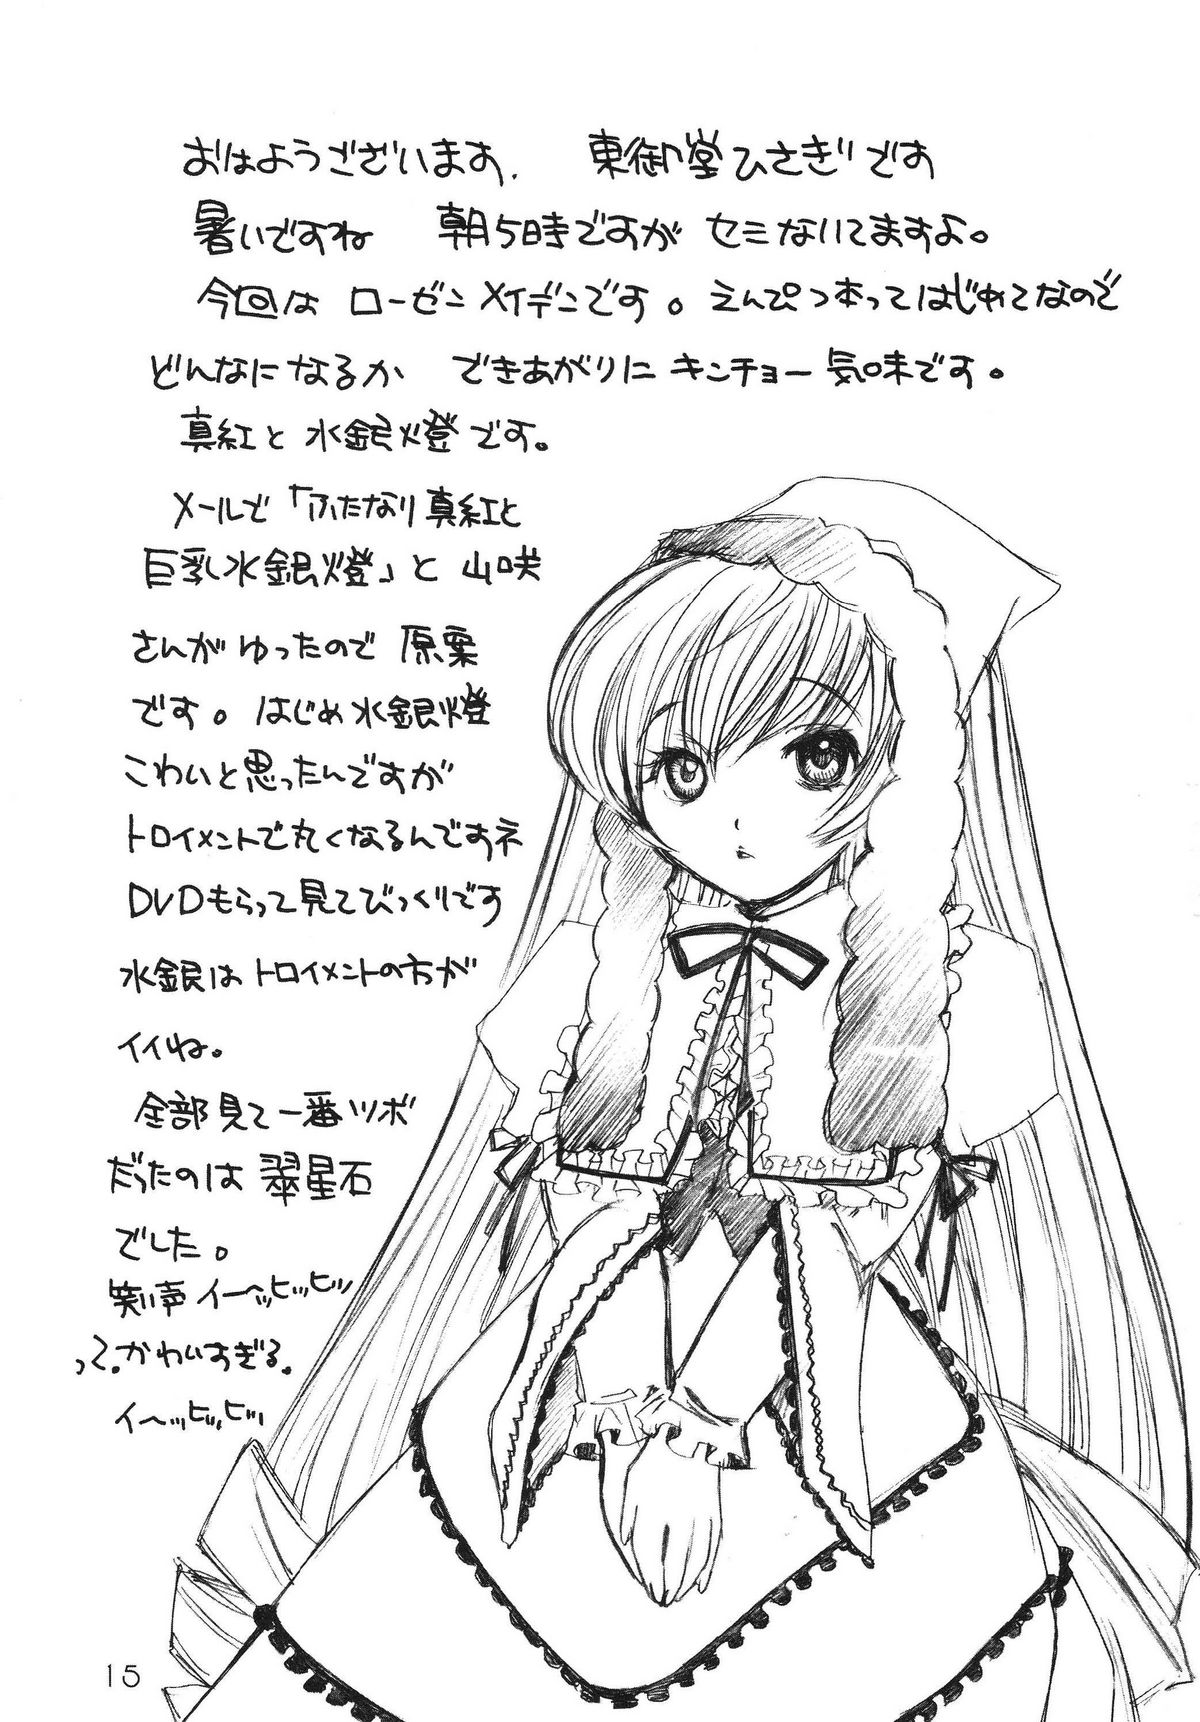 おはようございます. 東御堂ひさぎです
暑いですね 朝5時ですが セミないてますよ。
今回は ローゼンメイデンです。えんぴつ本ってはじめてなので
どんなになるか できあがりに キンチョー気味です。
真紅と 水銀燈です。
メールで「ふたなり真紅と
巨乳水銀燈」と 山咲
さんが ゆったので 原案
です。はじめ水銀燈
こわいと思ったんですが
トロイメントで丸くなるんですネ
DVDもらって見てびっくりです
水銀は トロイメントの方が
イイね。
全部見て一番ツボ
だったのは 翠星石
でした。
笑い声 イーヘッヒッヒッ
って.かわいすぎる.
イ〜ッヒッヒッ
15